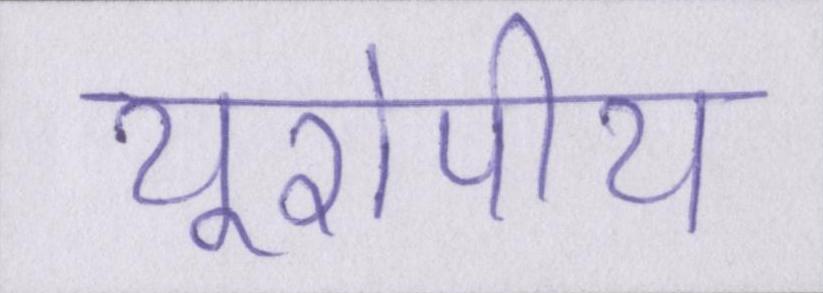 यूरोपीय